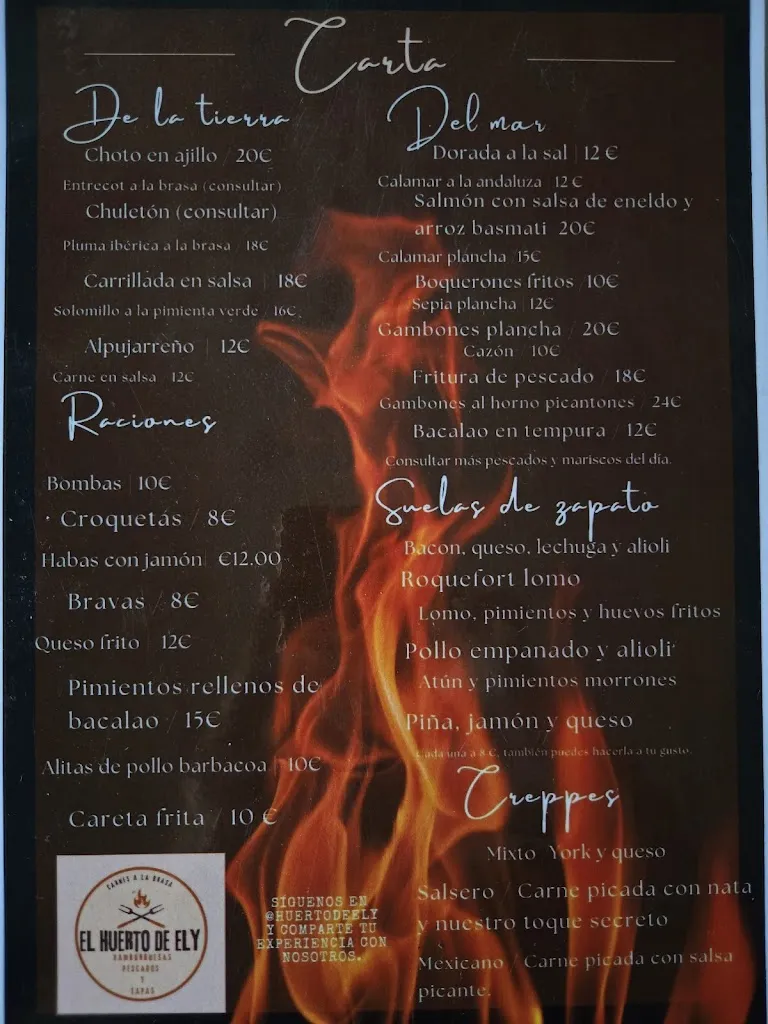 Carta
De la tierra
Choto en ajillo / 20€
Entrecot a la brasa (consultar)
Chuletón (consultar)
Pluma ibérica a la brasa / 18€
Carrillada en salsa | 18€
Solomillo a la pimienta verde / 16€
Alpujarreño | 12€
Carne en salsa / 12€
Raciones
Bombas | 10€
Croquetas / 8€
Habas con jamón | €12.00
Bravas / 8€
Queso frito | 12€
Pimientos rellenos de
bacalao / 15€
Alitas de pollo barbacoa | 10€
Careta frita / 10 €
Del mar
Dorada a la sal | 12 €
Calamar a la andaluza | 12 €
Salmón con salsa de eneldo y
arroz basmati 20€
Calamar plancha / 15€
Boquerones fritos / 10€
Sepia plancha | 12€
Gambones plancha / 20€
Cazón / 10€
Fritura de pescado / 18€
Gambones al horno picantones / 24€
Bacalao en tempura / 12€
Consultar más pescados y mariscos del día.
Suelas de zapato
Bacon, queso, lechuga y alioli
Roquefort lomo
Lomo, pimientos y huevos fritos
Pollo empanado y alioli
Atún y pimientos morrones
Piña, jamón y queso
Cada una a 8 €, también puedes hacerla a tu gusto.
Creppes
Mixto York y queso
Salsero / Carne picada con nata
y nuestro toque secreto
Mexicano / Carne picada con salsa
picante.
CARNES A LA BRASA
EL HUERTO DE ELY
HAMBURGUESAS
PESCADOS
Y
TAPAS
SÍGUENOS EN
@HUERTODEELY
Y COMPARTE TU
EXPERIENCIA CON
NOSOTROS.